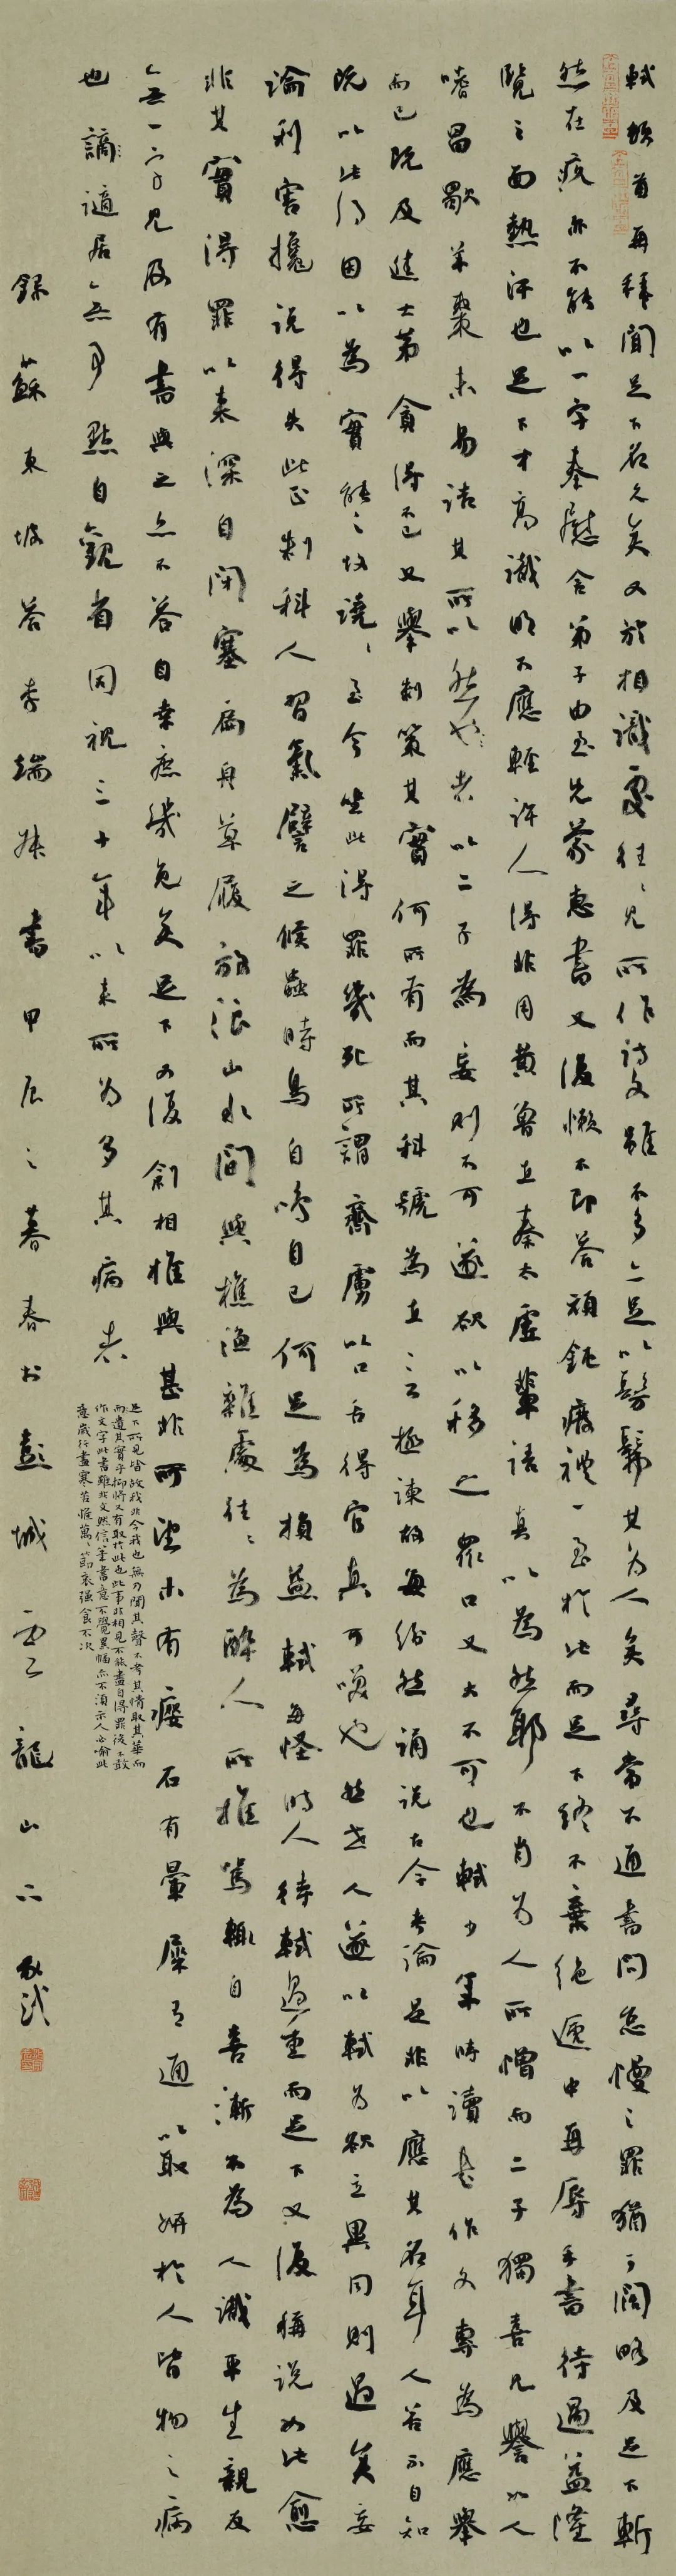 軾頓首再拜聞足下名久矣又於相識處往往見所作詩文雖不多亦足以髣髴其為人矣尋常不通書問怠慢之罪猶可闊略及足下斬
然在疚亦不能以一字奉慰舍弟子由至先蒙惠書又復懶不即答頑鈍廢禮一至於此而足下終不棄絕遞中再辱手書待遇益隆
覽之面熱汗也足下才高識明不應輕許人得非用黃魯直秦太虛輩語真以為然耶不肖為人所憎而二子獨喜見譽如人
嗜昌歜羊棗未易詰其所以然也者以二子為妄則不可遂欲以移之眾口又大不可也軾少年時讀書作文專為應舉
而已既及進士第貪得不已又舉制策其實何所有而其科號為直言極諫故每紛然誦說古今考論是非以應其名耳人苦不自知
既以此得因以為實能之故譊譊至今坐此得罪幾死所謂齊虜以口舌得官真可嘆也然世人遂以軾為欲立異同則過矣妄
論利害攙說得失此正制科人習氣譬之候蟲時鳥自鳴自已何足為損益軾每怪時人待軾過重而足下又復稱說如此愈
非其實得罪以來深自閉塞扁舟草履放浪山水間與樵漁雜處往往為醉人所推罵輒自喜漸不為人識平生親友
無一字見及有書與之亦不答自幸庶幾免矣足下又復創相推與甚非所望木有癭石有暈犀有通以取妍於人皆物之病
也謫適居無事默自觀省回視三十年以來所為多其病者
足下所見皆故我非今我也無乃聞其聲不考其情取其華而
而遺其實乎抑將又有取於此也此事非相見不能盡自得罪後不敢
作文字此書雖非文然信筆書意不覺累幅亦不須示人必喻此
意歲行盡寒苦惟萬萬節哀強食不次
錄蘇東坡答李端叔書甲辰之暮春於彭城雲龍山下